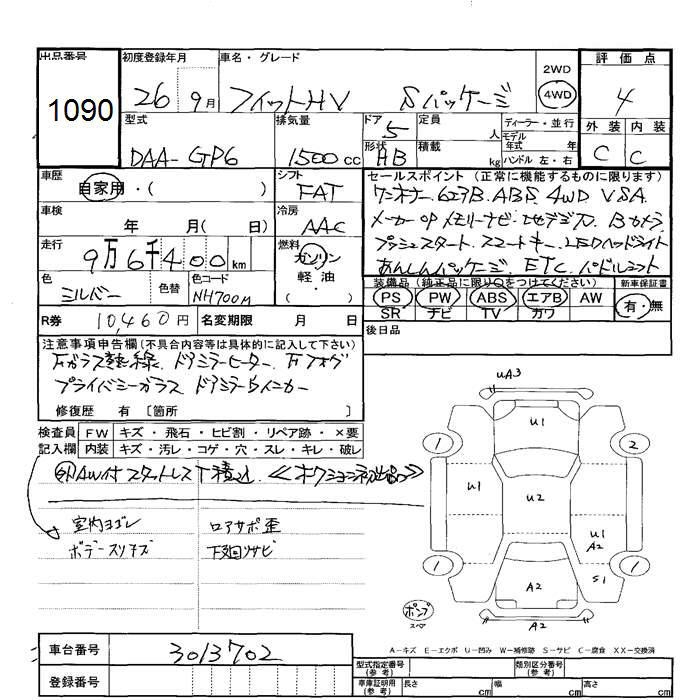 出品番号 初度登録年月 車名・グレード
1090 26 9月 フィットHV Sパッケージ 2WD 4WD
評価点
4
型式 排気量 ドア 5 定員 人 ディーラー・並行
外装 内装
DAA-GP6 1500cc 形状 HB 積載 kg モデル年式 年
ハンドル 左・右
C C
車歴 シフト セールスポイント (正常に機能するものに限ります)
自家用・( ) FAT ワンオーナー.6エアB.ABS.4WD VSA
車検 冷房 メーカーOP メモリーナビ・地デジTV. Bカメラ
年 月( 日) AAC プッシュスタート. スマートキー. LEDヘッドライト
走行 燃料 あんしんパッケージ. ETC. パドルシフト
9万6千400km ガソリン
軽・油
( )
装備品 (純正品に限りOをつけてください) 新車保証書
色 色替 色コード PS PW ABS エアB AW 有・無
シルバー NH700M SR ナビ TV カワ
R券 10,460円 名変期限 月 日 後日品
注意事項申告欄(不具合内容等は具体的に記入して下さい)
Fガラス熱線. ドアミラーヒーター. Fフォグ
プライバシーガラス ドアミラーウィンカー
修復歴 有 〔箇所 〕
検査員 FW キズ・飛石・ヒビ割・リペア跡・×要
記入欄 内装 キズ・汚レ・コゲ・穴・スレ・キレ・破レ
外AW付スタットレスT積込.
室内ヨゴレ ロアサポ歪
ボデースリキズ 下廻リサビ
UA3
U1
1 2
U1 U2 U1
A2
1 S1 1
A2
ポンプ
スペア
A2
A-キズ E-エクボ U-凹み W-補修跡 S-サビ C-腐食 XX-交換済
車台番号 3013702
型式指定番号(参考) 類別区分番号(参考)
登録番号
車庫証明用(参考) 長さ cm 幅 cm 高さ cm